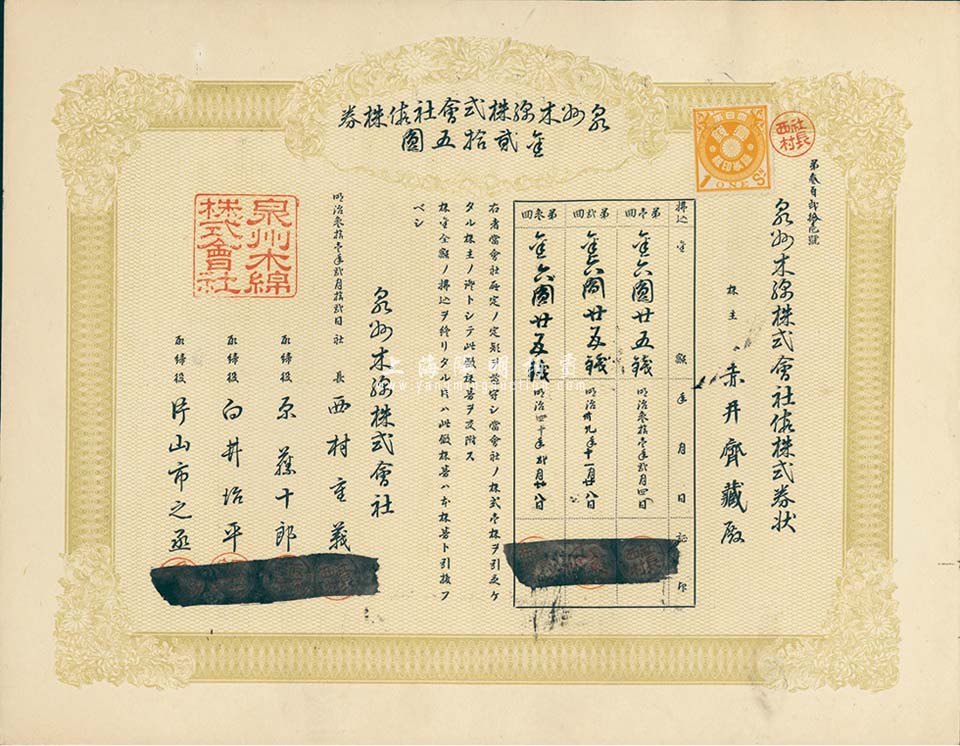 泉州木綿株式會社仮株券
金貳拾五圓
社長西村
1 ONE Sn
第叁百貳拾壱號
泉州木綿株式會社仮株式券状
株主 赤井齊藏殿
拂込金額 年月日 証印
第壱回 金六圓廿五銭 明治叁拾壱年貳月四日
第貳回 金六圓廿五銭 明治卅九年十一月廿八日
第叁回 金六圓廿五銭 明治四十年貳月廿八日
右者當會社所定ノ定欵ヲ遵守シ當會社ノ株式壱株ヲ引受ケ
タル株主ノ証トシテ此假株券ヲ交附ス
株金全額ノ拂込ヲ終リタル片ハ此假株券ハ本株券ト引換フ
ベシ
泉州木綿株式會社
明治叁拾壱年貳月拾貳日
社長 西村重義
取締役 原藤十郎
取締役 白井治平
取締役 片山市之丞
泉州木綿
株式會社
www.yangmingauction.com